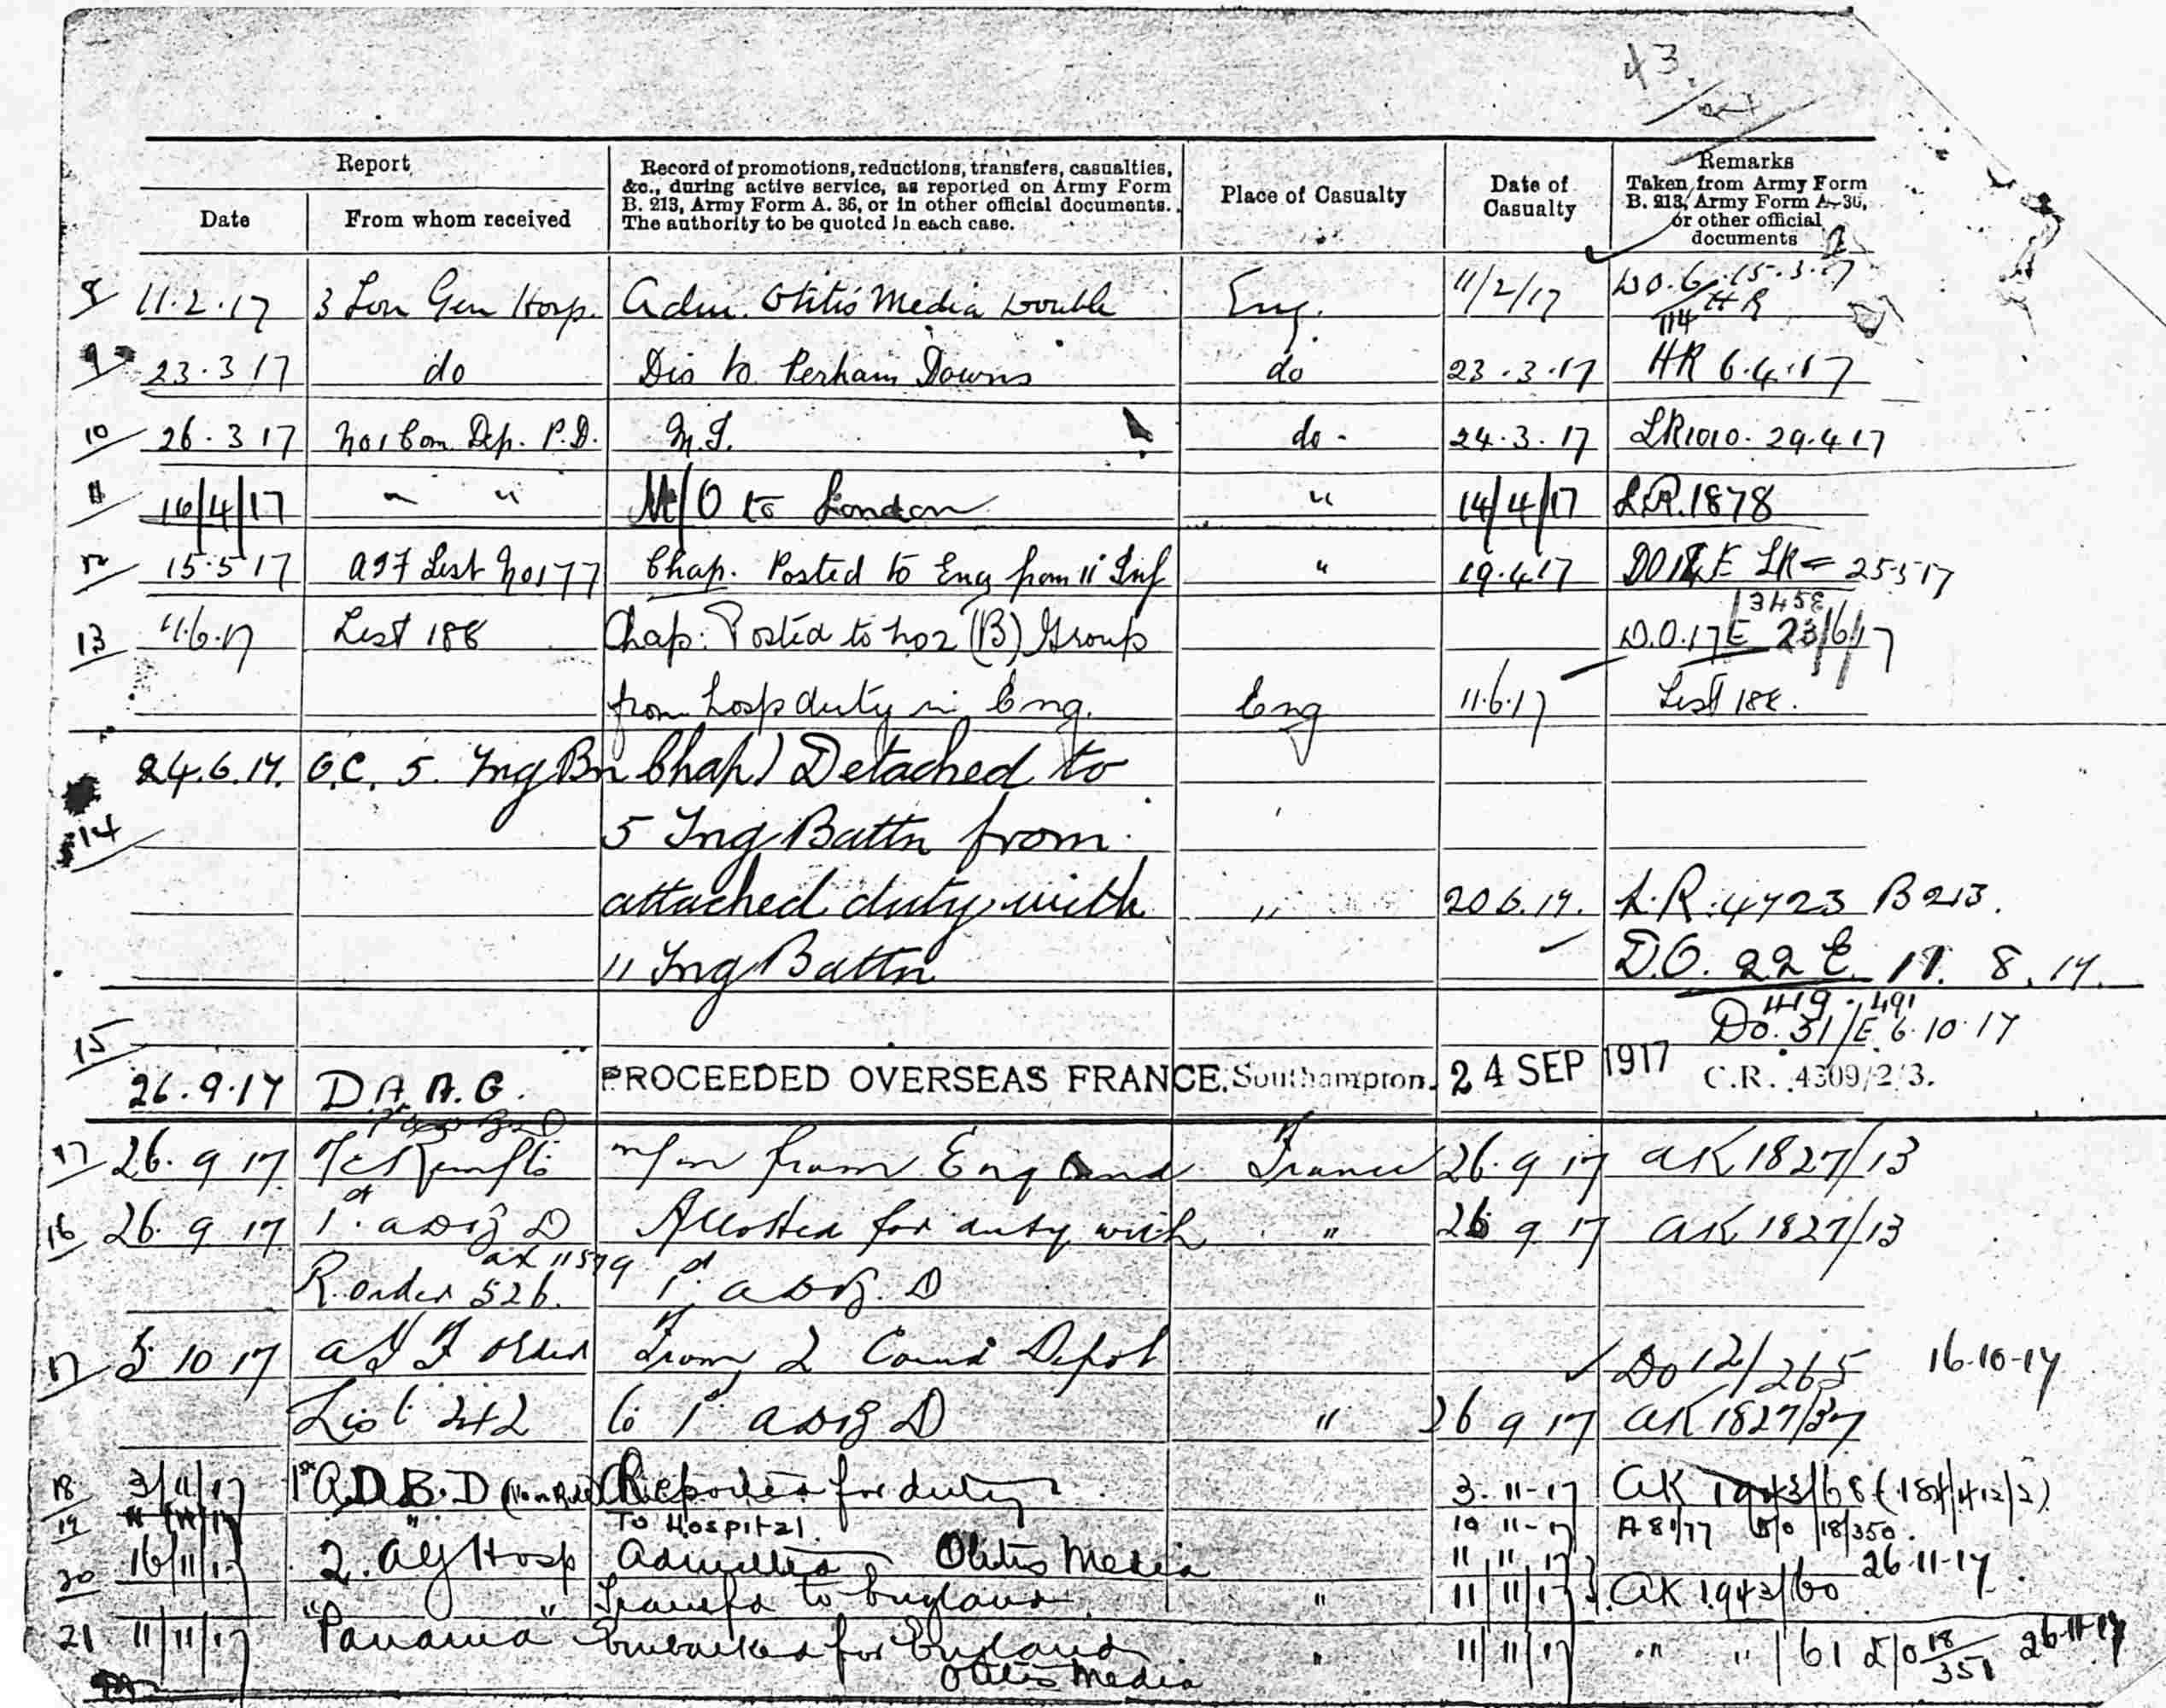 43.
Report
Record of promotions, reductions, transfers, casualties,
&c., during active service, as reported on Army Form
B. 213, Army Form A. 36, or in other official documents.
The authority to be quoted in each case.
Place of Casualty
Date of
Casualty
Remarks
Taken from Army Form
B. 213, Army Form A. 36,
or other official
documents
Date
From whom received
8 11.2.17 3 Lon Gen Hosp. Adm. Otitis Media Double Eng. 11/2/17 DO.6 15.3.17
114 HR
9 23.3 17 do Dis to Perham Downs do 23.3.17 HR 6.4.17
10 26.3 17 No 1 Com Dep. P.D. M.I. do - 24.3.17 LR1010. 29.4 17
11 16/4/17 " " M/O to London " 14/4/17 L.R.1878
12 15.5 17 AIF List No 177 Chap. Posted to Eng from 11 Inf " 19.4 17 LR 25 5 17
3458
13 11.6.17 List 188 Chap: Posted to No 2 (B) Group D.O.17E 23/6/17
from hosp duty in Eng. Eng 11.6.17 List 188.
24.6.17. O.C. 5. Tng Bn Chap) Detached to
14 5 Tng Battn from
attached duty with " 20 6.17. L.R. 4723 B 213.
11 Tng Battn D.O. 22 E. 11. 8.17.
419 . 491
15 DO.31/E 6.10.17
26.9.17 D.A.A.G. PROCEEDED OVERSEAS FRANCE. Southampton. 24 SEP 1917 C.R. 4309/2/3.
17 26.9 17 m/in from England France 26.9 17 AK 1827/13
16 26.9 17 1st ABD Allotted for duty with " 26 9 17 AK 1827/13
AK 11579
R. Order 526. 1st ABD
17 5 10 17 AIF Order From 2 Comd Depot DO 12/265 16-10-17
List 242 to 1st ABD " 26 9 17 AK 1827/37
18 3/11/17 1st A.D.B.D Reported for duty 3.11-17 AK 1943/68
19 " To Hospital. 10 11-17 18/350.
20 16/11/17 2. AG Hosp Admitted Otitis Media 11 11 17 26-11-17
" " Transfd to England. " 11/11/17 AK 1943/60
21 11/11/17 "Panama" Embarked for England " 11/11/17 " " /61 D/O 18/351 26-11-17
Otitis Media